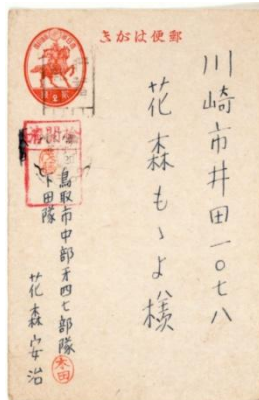 郵便はがき
川崎市井田一〇七八
花森もゝよ様
検閲済
鳥取市中部第四七部隊
下田隊
花森安治